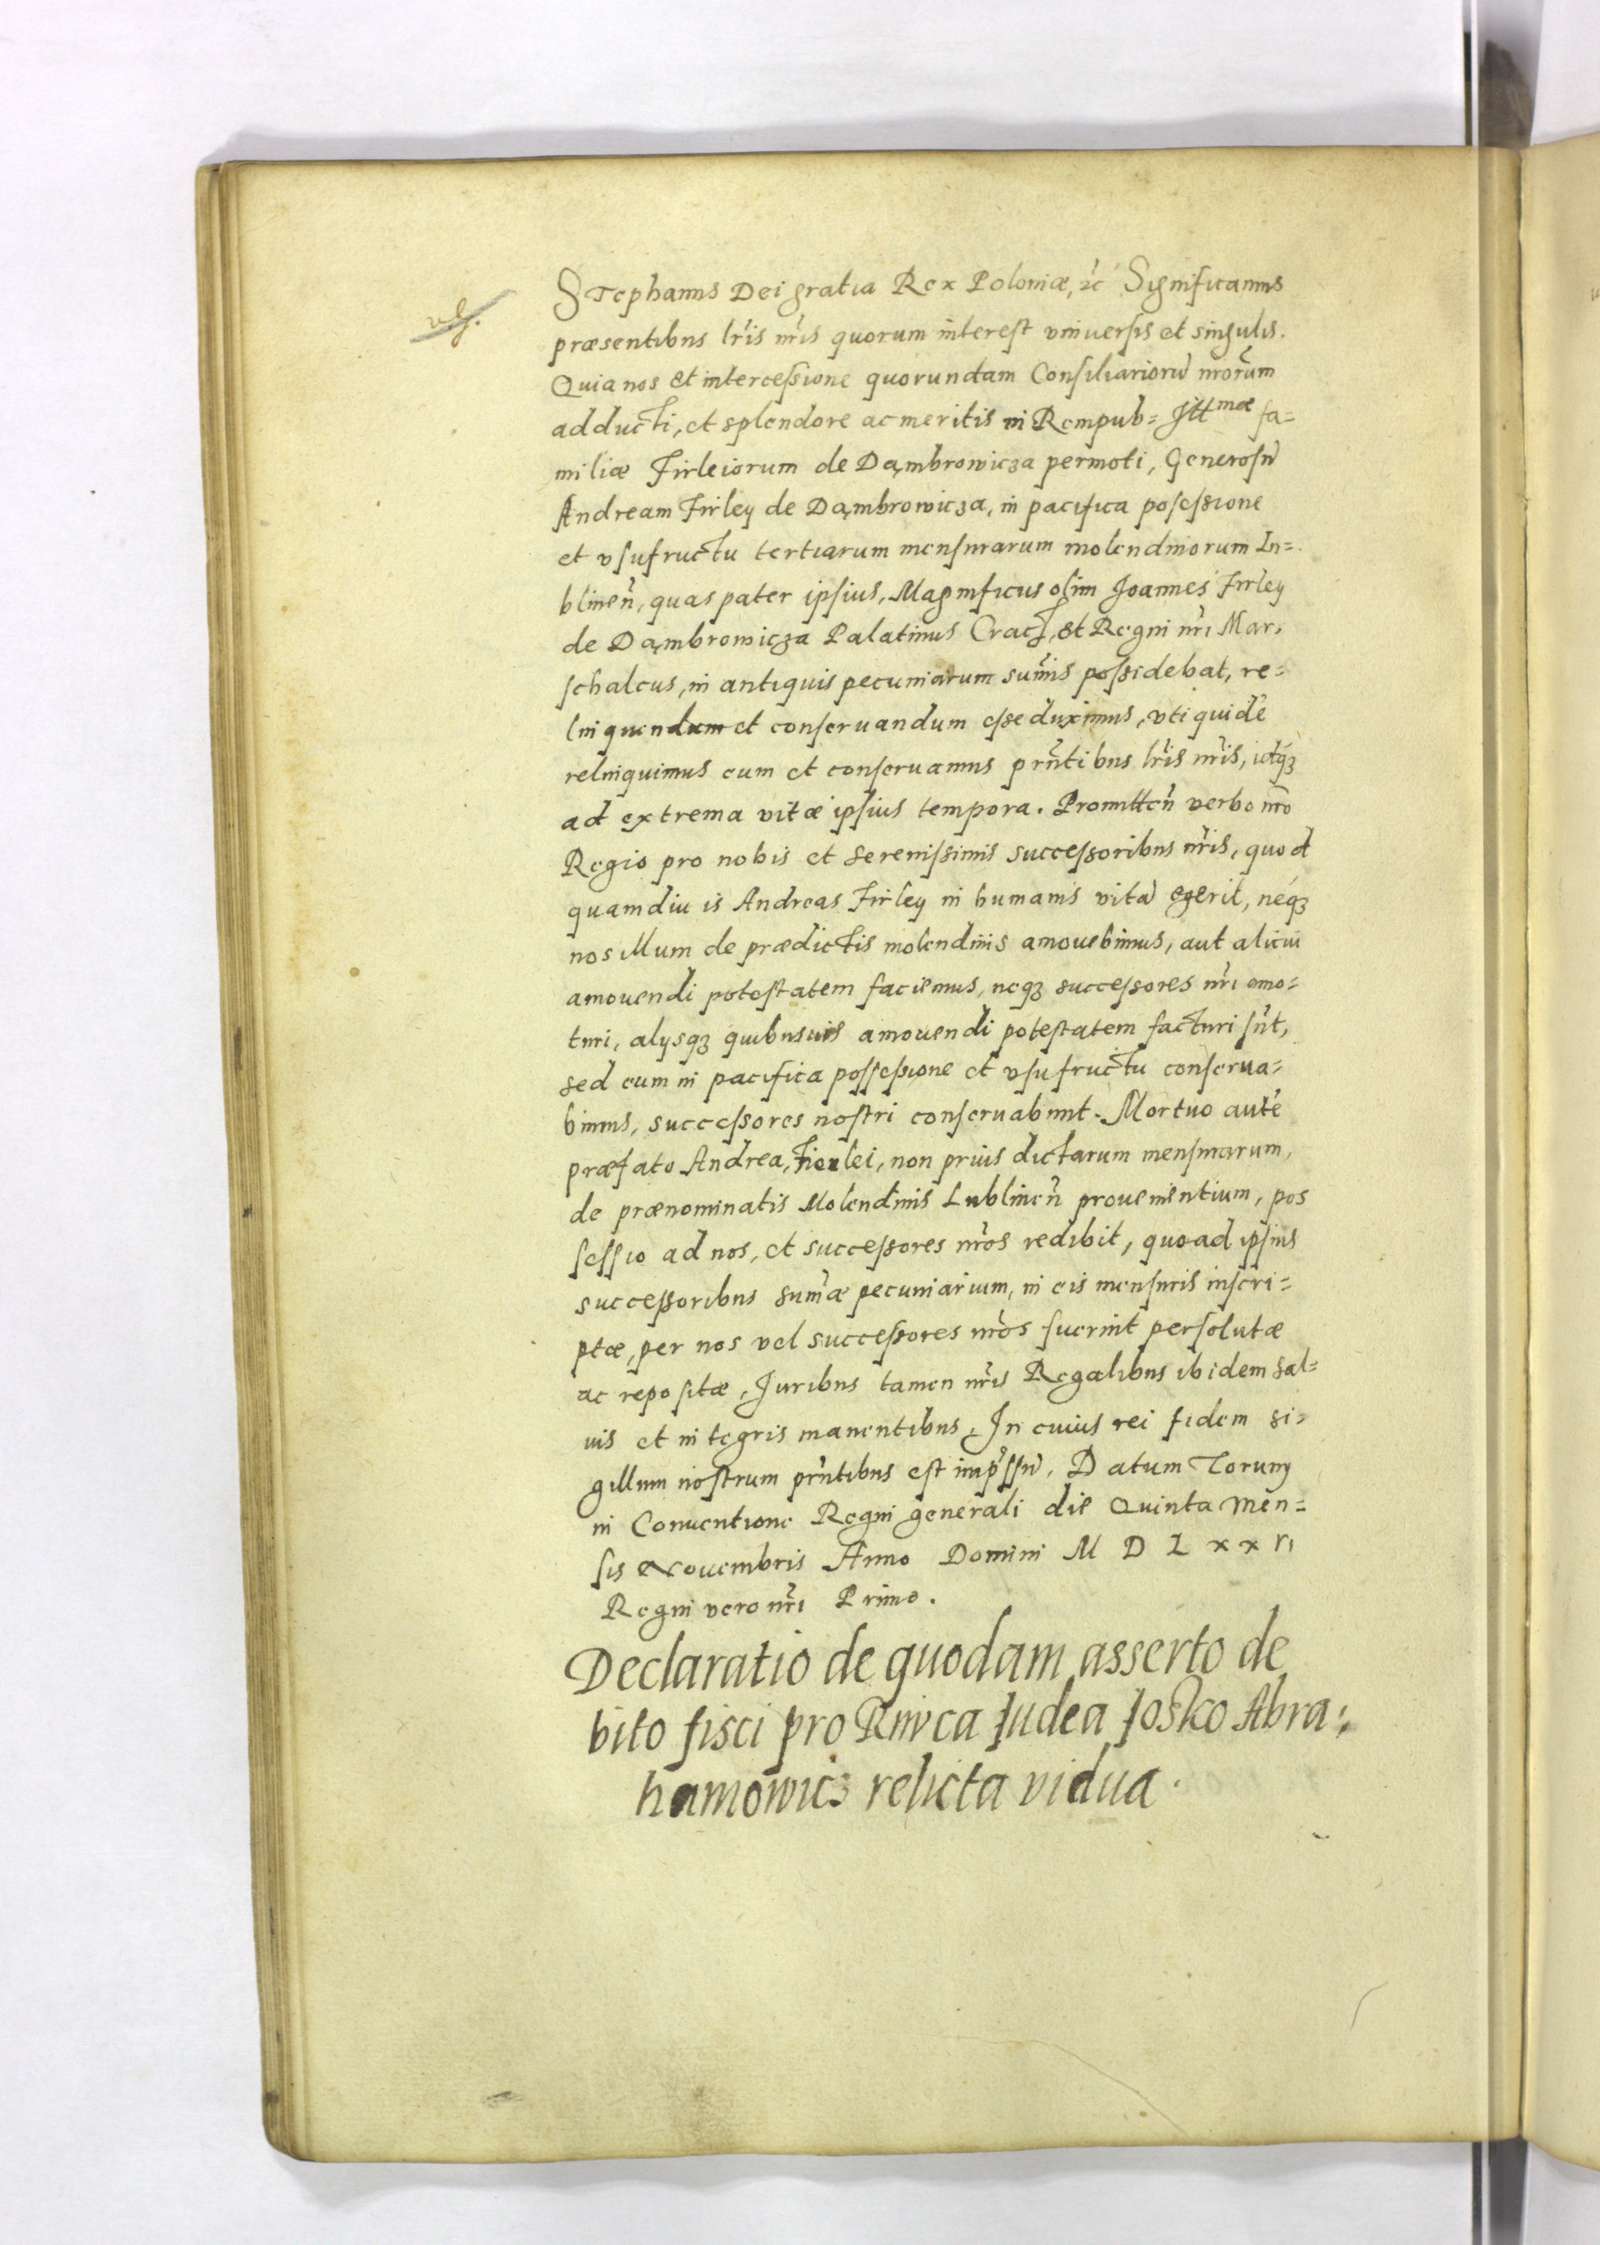 Stephanus Dei gratia Rex Poloniæ, &c Significamus
præsentibus lr̃is nr̃is quorum interest vniuersis et singulis.
Quia nos et intercessione quorundam Consiliariorũ nrõrum
adducti, et splendore ac meritis in Rempub= Illmæ fa=
miliæ Firleiorum de Dąmbrowicza permoti, Generosũ
Andream Firley de Dąmbrowicza, in pacifica possessione
et vsufructu tertiarum mensurarum molendinorum Lu=
blineñ, quas pater ipsius, Magnificus olim Joannes Firley
de Dąmbrowicza Palatinus Crac, et Regni nr̃i Mar,
schalcus, in antiquis pecuniarum sum̃is possidebat, re=
linquendum et conseruandum esse duximus, vti quidẽ
relinquimus eum et conseruamus pr̃ntibus lr̃is nr̃is, vtq́ꝫ
ad extrema vitæ ipsius tempora. Promitteñ verbo nr̃o
Regio pro nobis et serenissimis successoribus nr̃is, quod
quamdiu is Andreas Firley in humanis vitã egerit, néqꝫ
nos illum de prædictis molendinis amouebimus, aut alicui
amouendi potestatem faciemus, neqꝫ successores nr̃i amo=
turi, alysqꝫ quibusuis amouendi potestatem facturi sũt,
sed eum in pacifica possessione et vsufructu conserua=
bimus, successores nostri conseruabunt. Mortuo autẽ
præfato Andrea Firlei, non prius dictarum mensurarum,
de prænominatis Molendinis Lublineñ prouenientium, pos
sessio ad nos, et successores nr̃os redibit, quoad ipsius
successoribus sum̃æ pecuniarium, in eis mensuris inscri=
ptæ, per nos vel successores nr̃os fuerint persolutæ
ac repositæ, Juribus tamen nr̃is Regalibus ibidem sal=
uis et integris manentibus, In cuius rei fidem si=
gillum nostrum pr̃ntibus est imp̃ssũ. Datum Toruny
in Conuentione Regni generali die Quinta Men=
sis Nouembris Anno Domini M D L x x vi
Regni vero nr̃i Primo.
Declaratio de quodam asserto de
bito fisci pro Riwca Iudea Josko Abra=
hamowicz relicta vidua.